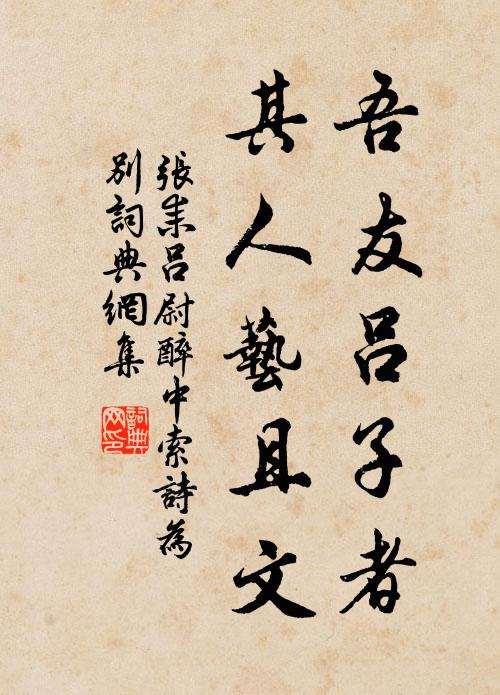 吾友呂子者
其人藝且文
張耒呂尉醉中索詩為
別詞典網集
詞典
网印